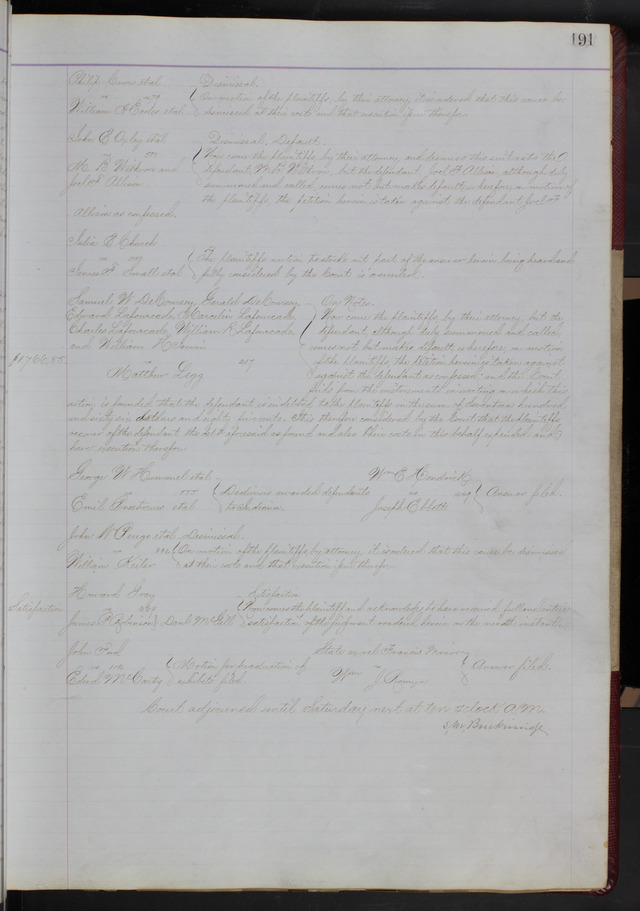 191
et al Dismissal.
On motion of the plaintiffs, by their attorney, it is ordered that this cause be
William H et al dismissed at their costs and that execution issue therefor.
John E et al Dismissal, Default.
Now come the plaintiffs by their attorney and dismiss this suit as to the
M. B. and defendant M. B. but the defendant Joel F. Allison although duly
Joel F. Allison summoned and called, comes not but makes default, wherefore, on motion of
the plaintiffs, the petition herein is taken against the defendant Joel F.
Allison as confessed.
Julia E. Church
The plaintiffs motion to strike out part of the answer herein being heard and
James F. Small et al fully considered by the Court is overruled.
Samuel W DeCoursey, Gerald DeCoursey On Notes.
Edward Lafourcade, Marcelin Lafourcade Now come the plaintiffs, by their attorney, but the
Charles Lafourcade, William R Lafourcade defendant although duly summoned and called
and William comes not but makes default, wherefore, on motion
$1766.85 of the plaintiffs, the petition herein is taken against
Matthew Legg against the defendant as confessed, and the Court
finds from the instruments in writing on which this
action is founded that the defendant is indebted to the plaintiffs in the sum of seventeen hundred
and sixty six dollars and eighty five cents. It is therefore considered by the Court that the plaintiffs
recover of the defendant the aforesaid as found and also their costs in this behalf expended and
have execution therefor.
George W Hummel et al Wm. E. Hendrick
777 Dedimus awarded defendants Answer filed.
Emil et al to Indiana. Joseph
John W et al Dismissal.
On motion of the plaintiffs by attorney, it is ordered that this cause be dismissed
William at their costs and that execution issue therefor.
Howard Gray Satisfaction
Satisfaction Now comes the plaintiff and acknowledges to have received full and entire
James R Robinson Danl. McGill satisfaction of the judgment rendered herein on the instant.
John Ford State ex rel Francis
Motion for production of Answer filed.
Edwd. McCarty exhibits filed. Wm J
Court adjourned until Saturday next at ten o'clock A.M.
Breckinridge